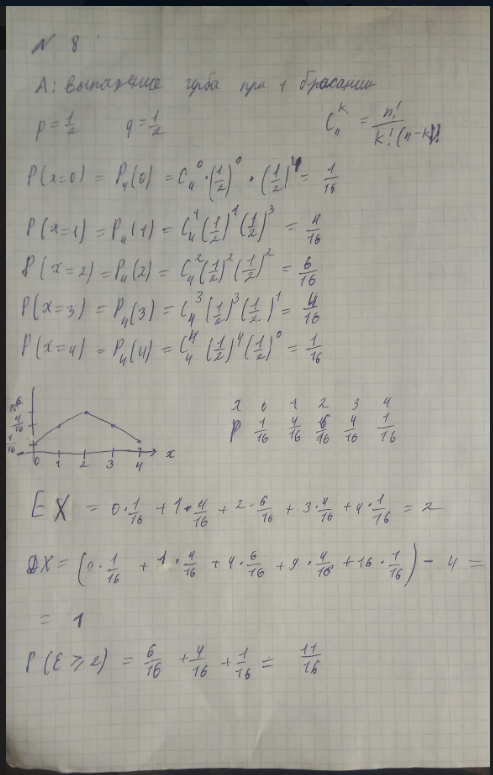 N 8
A: выпадение герба при 1 бросании
p = 1/2 q = 1/2 C_n^k = n!/k!(n-k)!
P(x=0) = P_4(0) = C_4^0 · (1/2)^0 · (1/2)^4 = 1/16
P(x=1) = P_4(1) = C_4^1 (1/2)^1 (1/2)^3 = 4/16
P(x=2) = P_4(2) = C_4^2 (1/2)^2 (1/2)^2 = 6/16
P(x=3) = P_4(3) = C_4^3 (1/2)^3 (1/2)^1 = 4/16
P(x=4) = P_4(4) = C_4^4 (1/2)^4 (1/2)^0 = 1/16
6/16
4/16
1/16
0 1 2 3 4 x
x 0 1 2 3 4
P 1/16 4/16 6/16 4/16 1/16
EX = 0·1/16 + 1·4/16 + 2·6/16 + 3·4/16 + 4·1/16 = 2
DX = (0·1/16 + 1·4/16 + 4·6/16 + 9·4/16 + 16·1/16) - 4 =
= 1
P(ξ ≥ 2) = 6/16 + 4/16 + 1/16 = 11/16